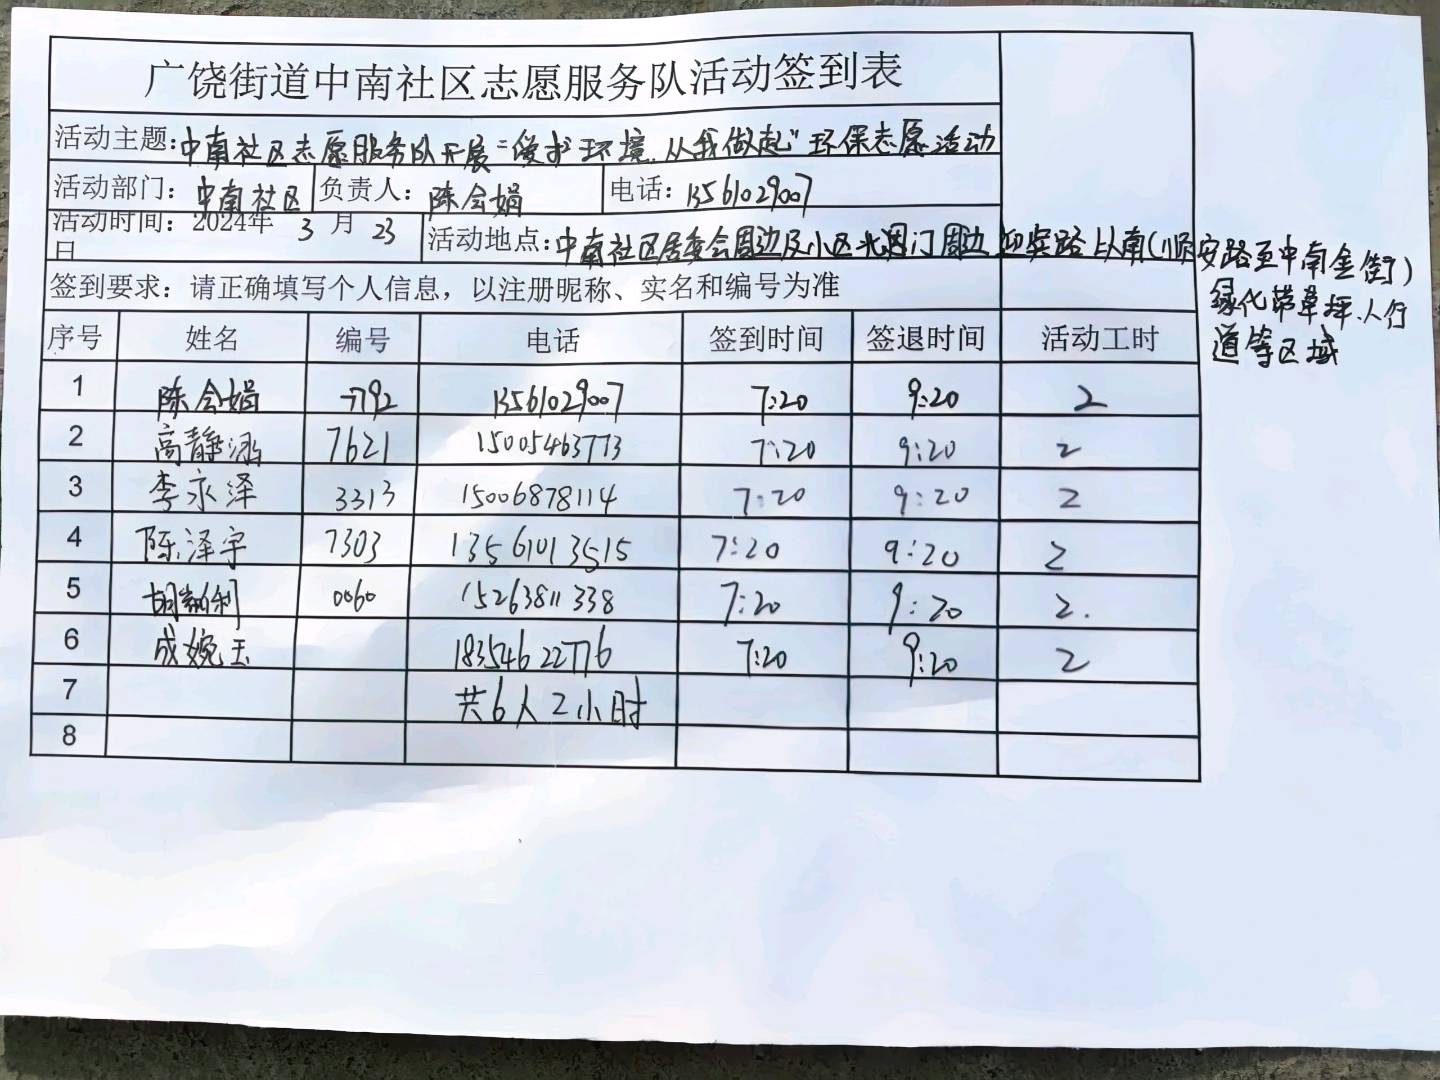 广饶街道中南社区志愿服务队活动签到表
活动主题:中南社区志愿服务队开展“爱护环境.从我做起”环保志愿活动
活动部门: 中南社区 负责人: 陈会娟 电话: 13561029007
活动时间: 2024年 3 月 23
日
活动地点:中南社区居委会周边及小区北 门周边 迎宾路以南(顺安路至中南金街)
绿化带草坪.人行
道等区域
签到要求: 请正确填写个人信息, 以注册昵称、实名和编号为准
序号 姓名 编号 电话 签到时间 签退时间 活动工时
1 陈会娟 7792 13561029007 7:20 9:20 2
2 高静 7621 15005463773 7:20 9:20 2
3 李永泽 3313 15006878114 7:20 9:20 2
4 陈泽宇 7303 13561013515 7:20 9:20 2
5 胡 利 0060 15263811338 7:20 9:20 2.
6 成婉玉 18354622776 7:20 9:20 2
7 共6人2小时
8